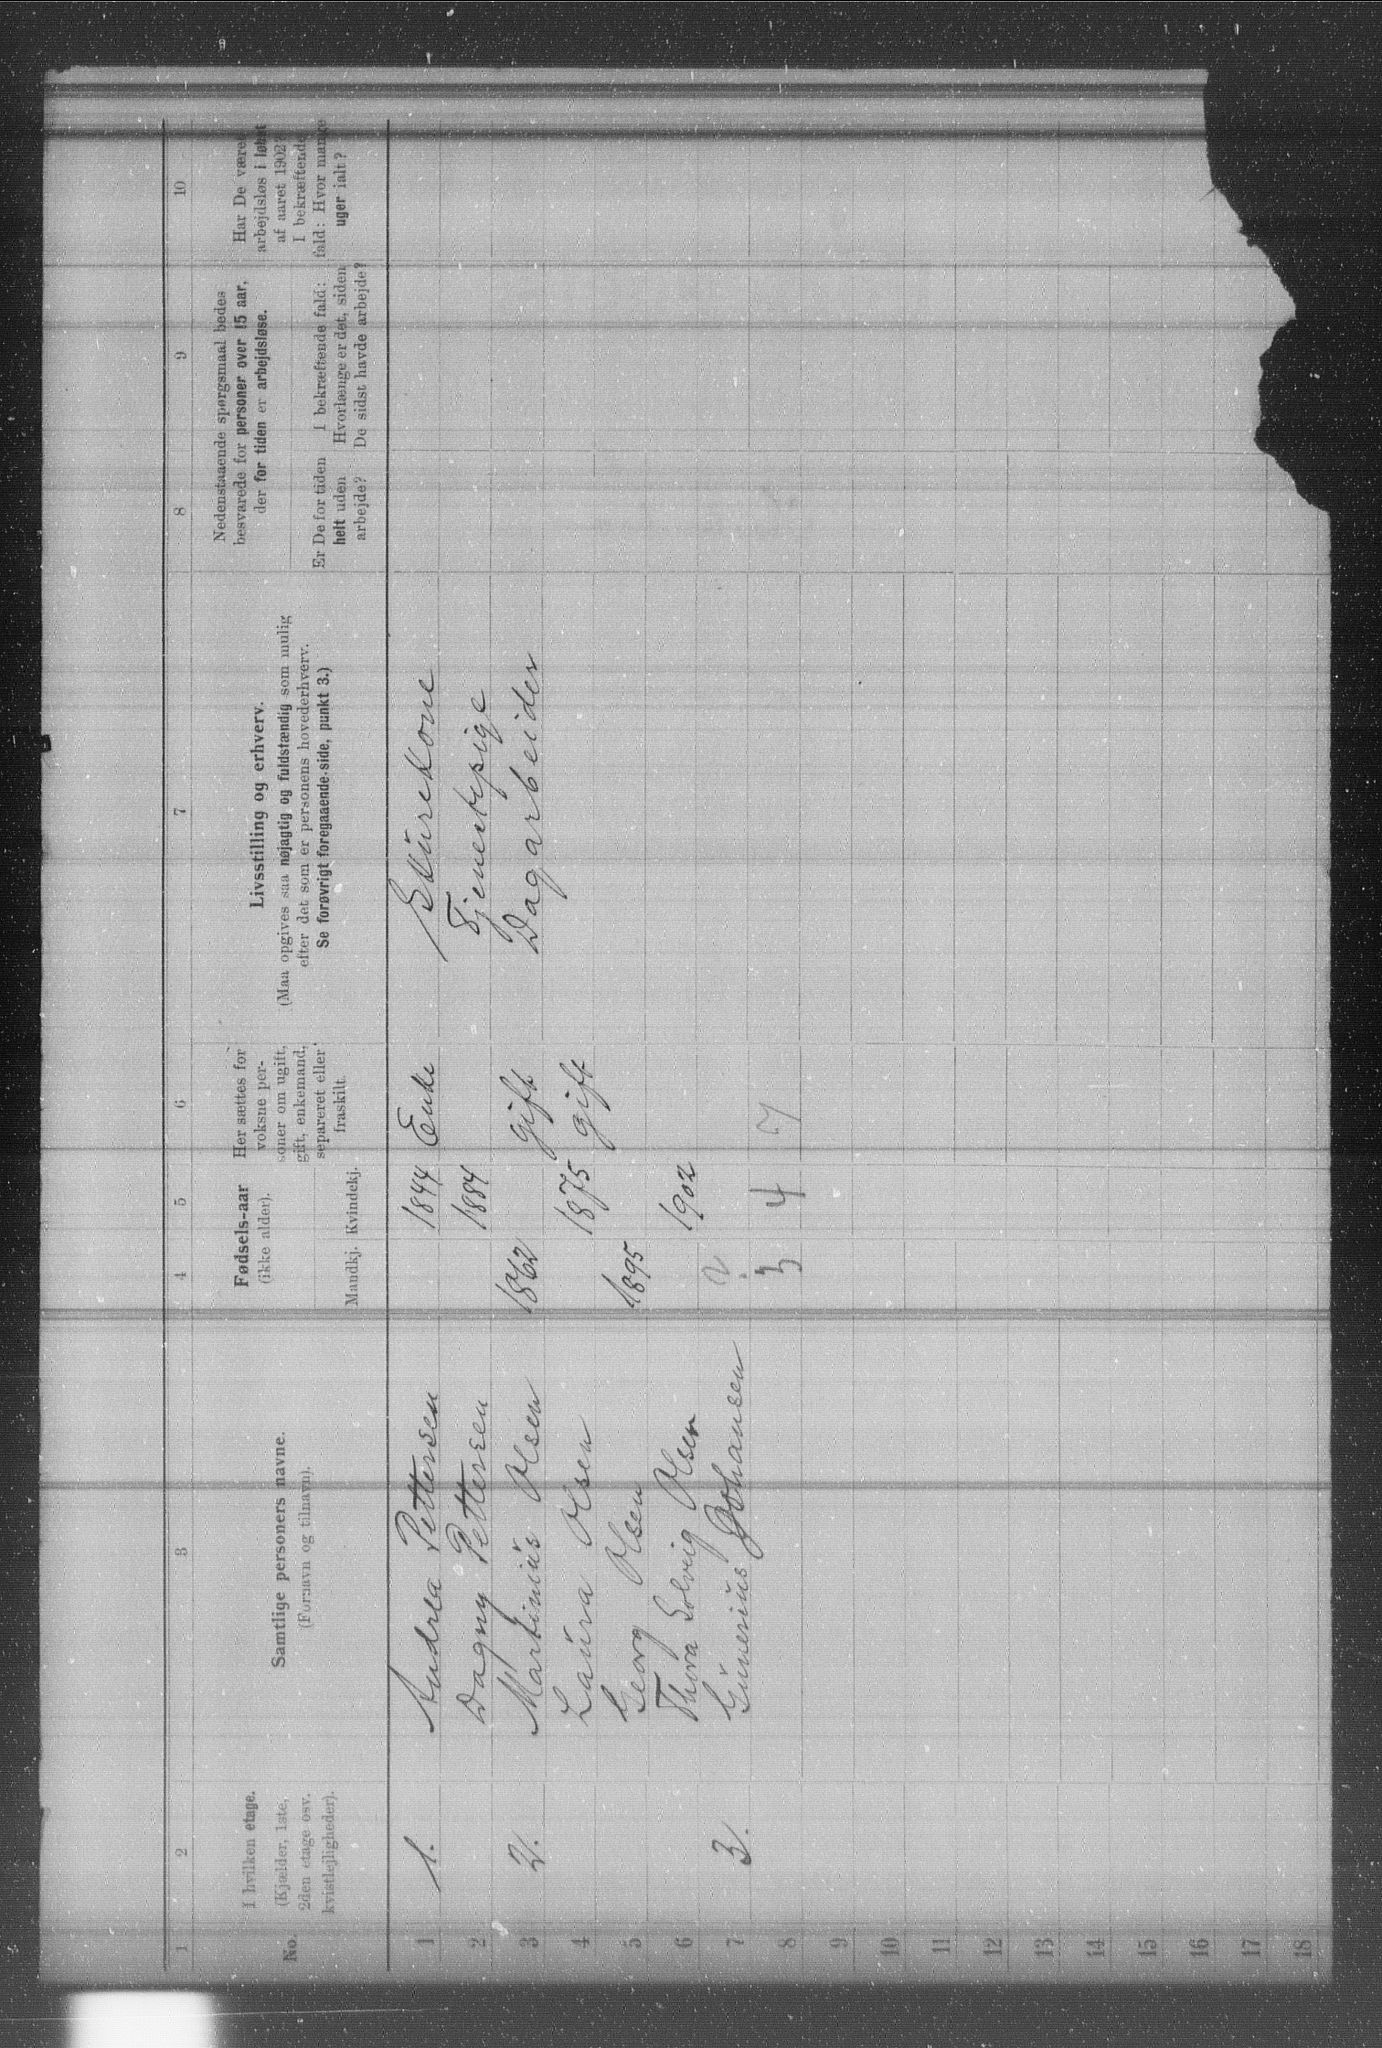 1 2 3 4 5 6 7 8 9 10
No.
I hvilken etage.
(Kjælder, 1ste,
2den etage osv.
kvistlejligheder).
Samtlige personers navne.
(Fornavn og tilnavn).
Fødsels-aar
(ikke alder).
Mandkj. Kvindekj.
Her sættes for
voksne per-
soner om ugift,
gift, enkemand,
separeret eller
fraskilt.
Livsstilling og erhverv.
(Maa opgives saa nøjagtig og fuldstændig som mulig
efter det som er personens hovederhverv.
Se forøvrigt foregaaende side, punkt 3.)
Nedenstaaende spørgsmaal bedes
besvarede for personer over 15 aar,
der for tiden er arbejdsløse.
Er De for tiden
helt uden
arbejde?
I bekræftende fald:
Hvorlænge er det, siden
De sidst havde arbejde?
Har De været
arbejdsløs i løbet
af aaret 1902?
I bekræftende
fald: Hvor mange
uger ialt?
1 1. Andrea Pettersen 1844 Enke Skurekone
2 Dagny Pettersen 1884 Tjenestepige
3 2. Martinius Olsen 1862 gift Dagarbeider
4 Laura Olsen 1875 gift
5 Georg Olsen 1895
6 Thora Solveig Olsen 1902
7 3. Gunerius Johansen 2
8 3 4 7
9
10
11
12
13
14
15
16
17
18